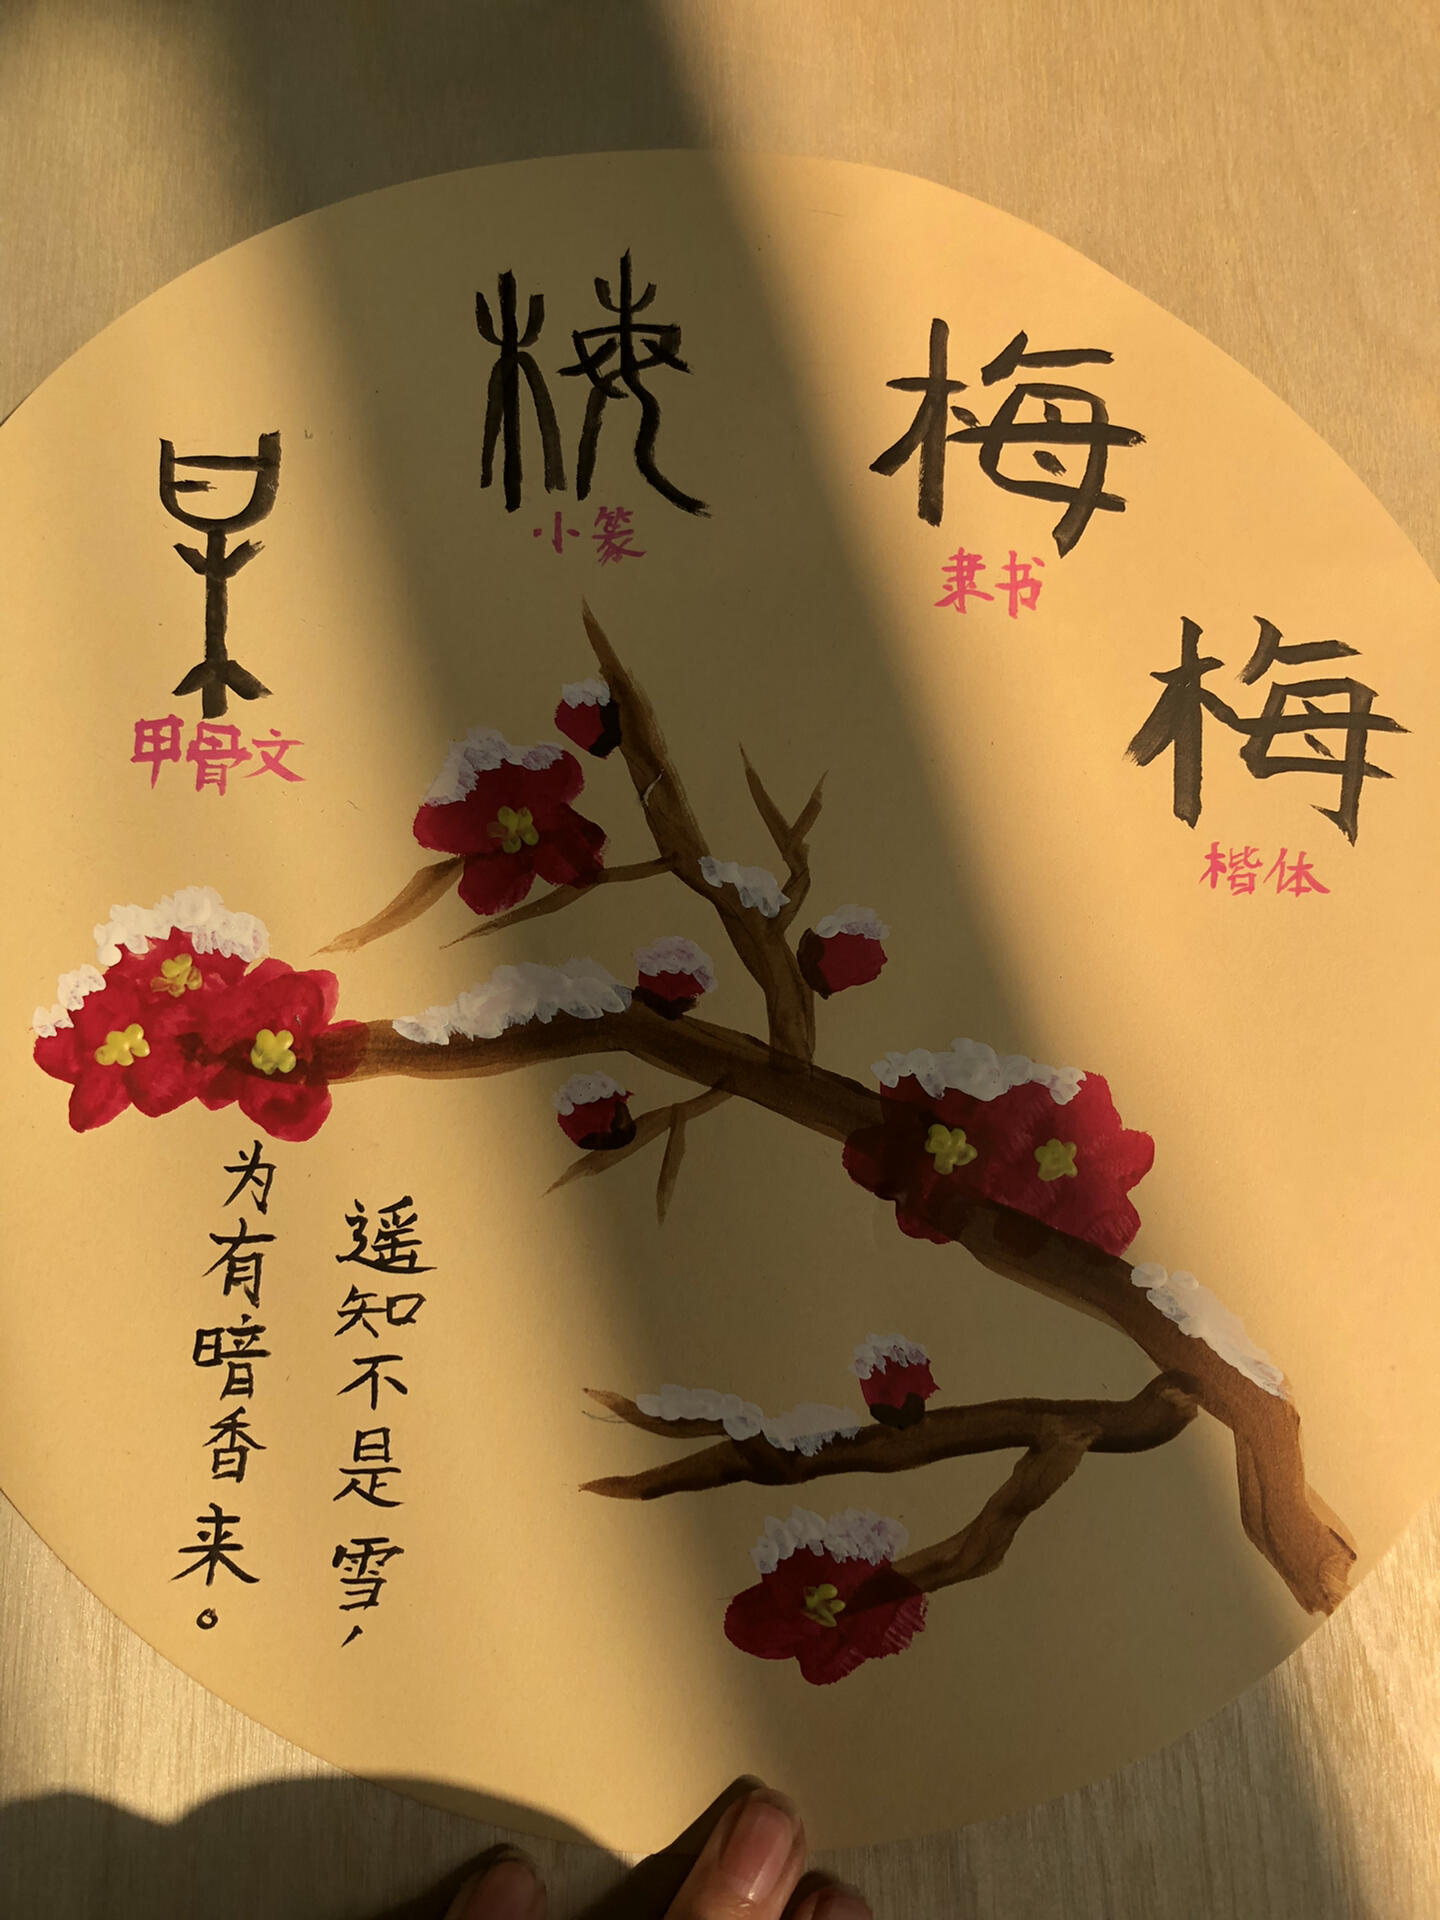 甲骨文
梅
小篆
梅
隶书
梅
楷体
遥知不是雪，
为有暗香来。